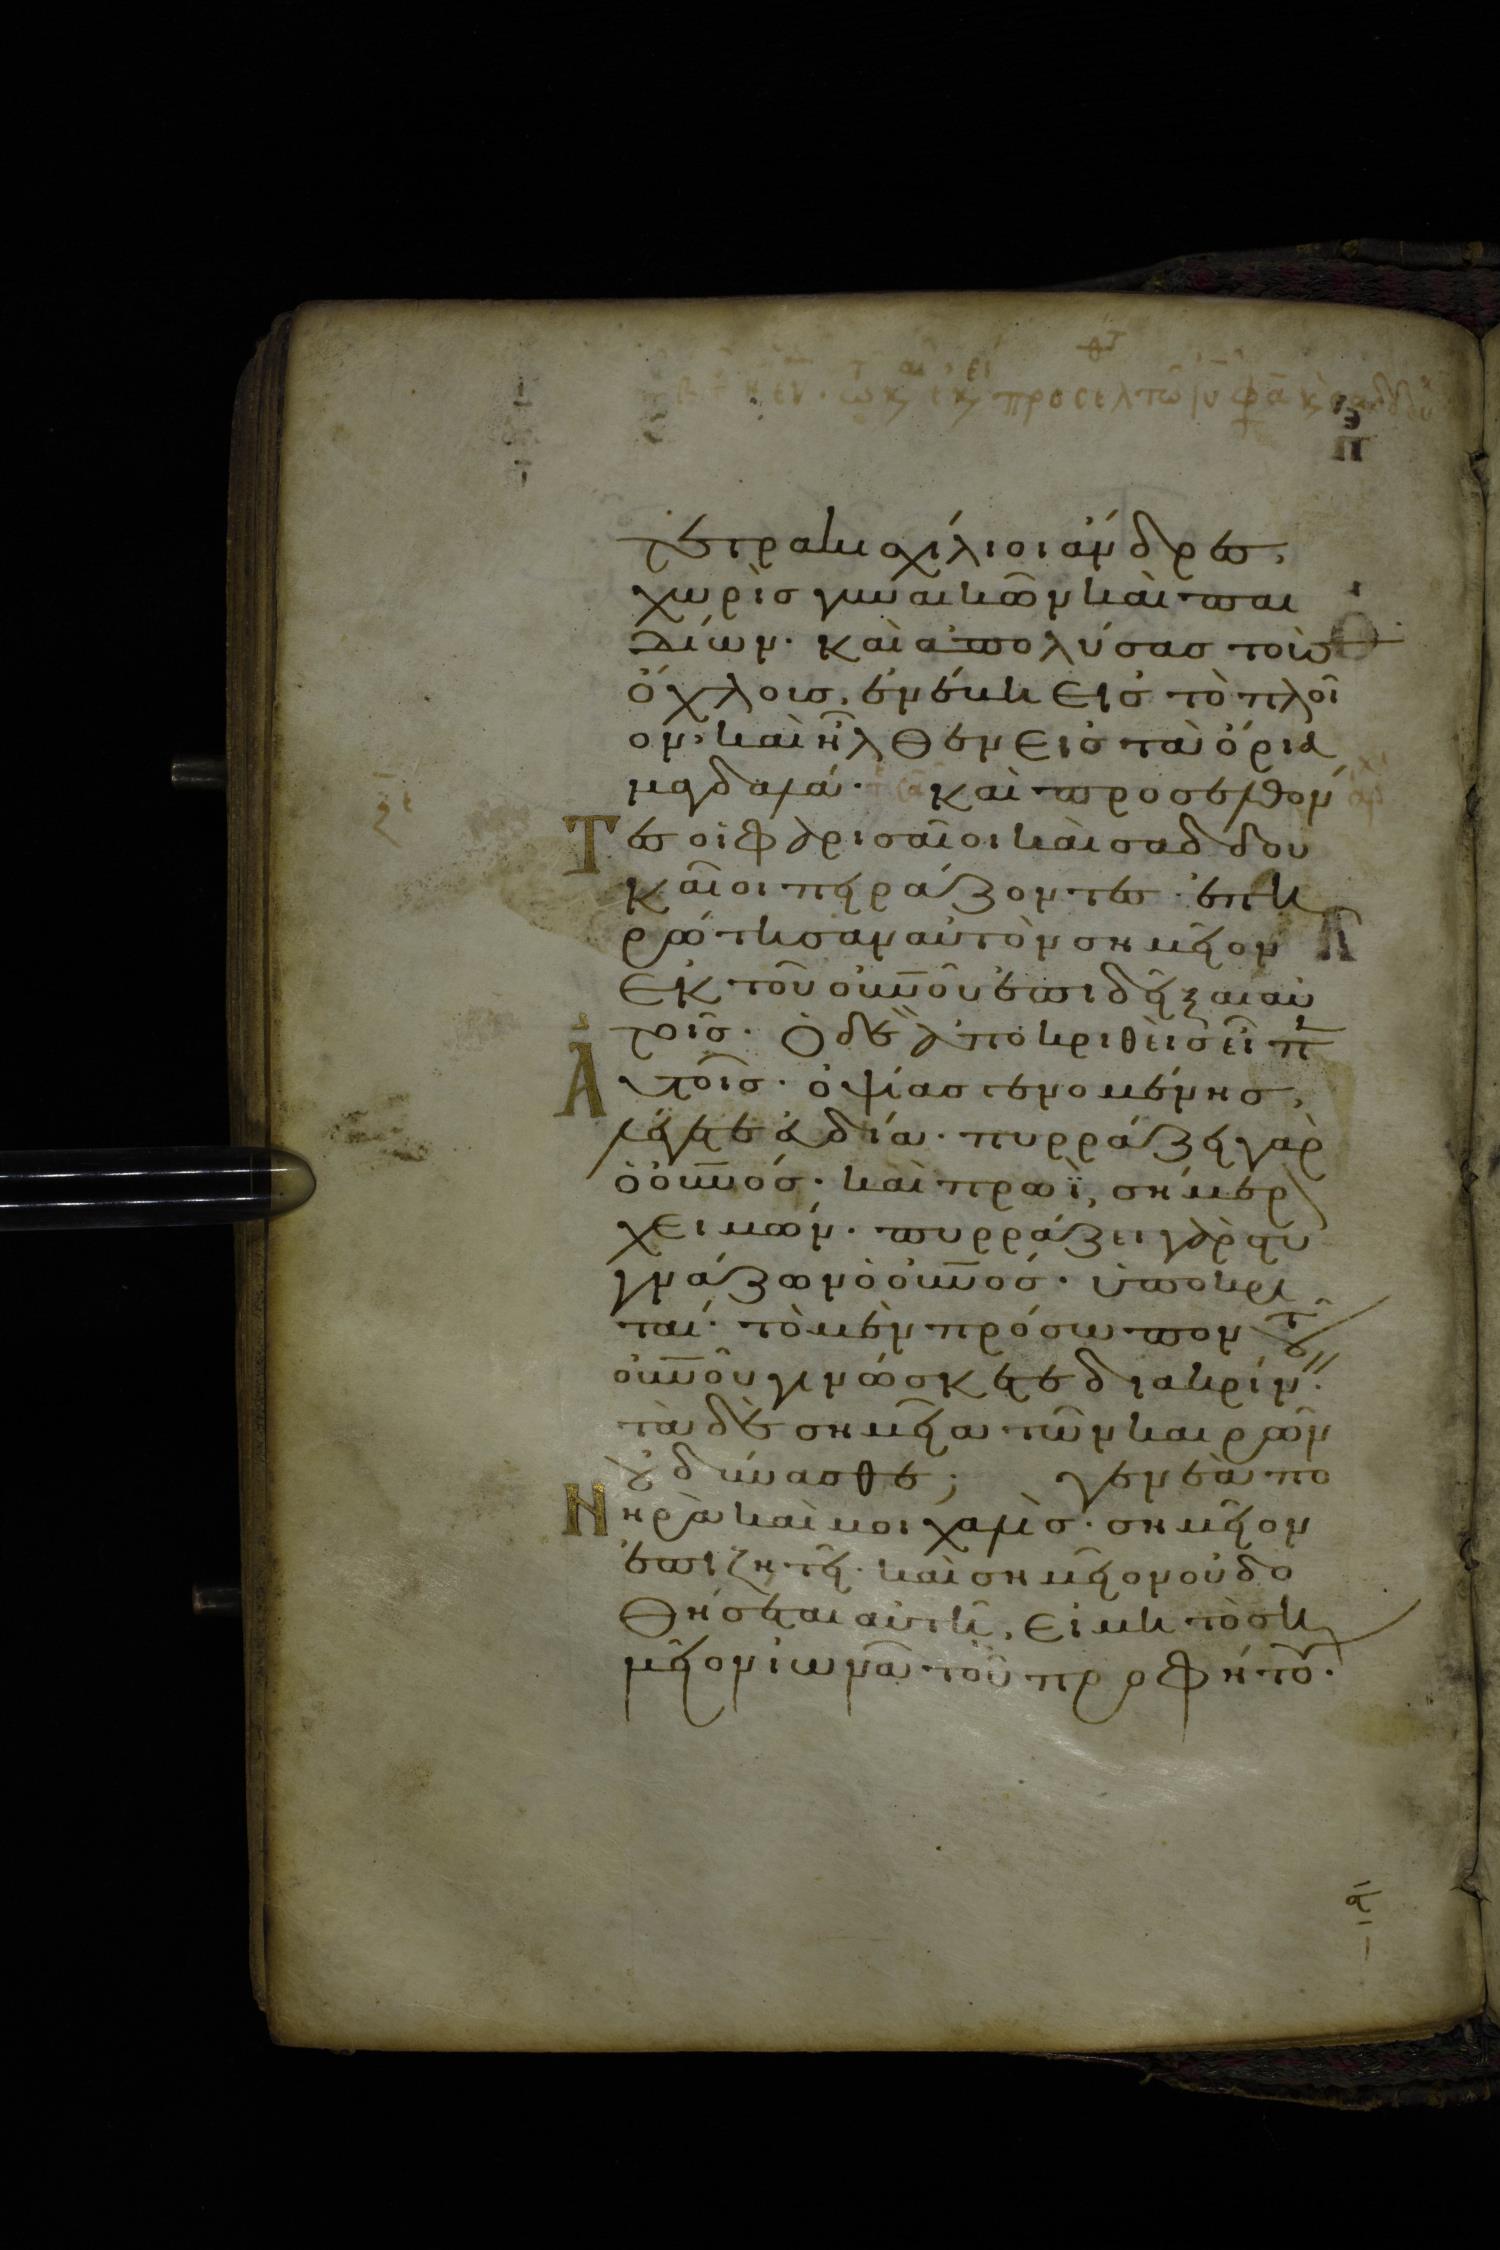 τετρακισχίλιοι ἄνδρες,
χωρὶσ γυναικῶν καὶ παι
δίων· καὶ ἀπολύσασ τοὺσ
ὄχλουσ, ἐνέβη εἰσ τὸ πλοῖ
ον, καὶ ἦλθεν εἰσ τὰ ὅρια
μαγδαλά· καὶ προσελθόν
Τεσ οἱ φαρισαῖοι καὶ σαδδου
καῖοι πειράζοντεσ ἐπη
ρώτησαν αὐτὸν σημεῖον
ἐκ τοῦ οὐ̅νοῦ ἐπιδεῖξαι αὐ
τοῖσ· Ὁ δὲ ἀποκριθεὶσ εἶπ
Αὐτοῖσ· ὀψίασ γενομένησ,
λέγετε εὐδία· πυρράζει γὰρ
ὁ οὐ̅νόσ· καὶ πρωῒ, σήμερ
χειμών· πυρράζει γὰρ στυ
γνάζων ὁ οὐ̅νόσ· ὑποκρι
ταί· τὸ μὲν πρόσωπον τοῦ
οὐ̅νοῦ γινώσκετε διακρίν·
τὰ δὲ σημεῖα τῶν καιρῶν
οὐ δύνασθε; γενεὰ πο
Νηρὰ καὶ μοιχαλὶσ· σημεῖον
ἐπιζητεῖ· καὶ σημεῖον οὐ δο
θήσεται αὐτῆ, εἰ μὴ τὸ ση
μεῖον ἰωνᾶ τοῦ προφήτου·